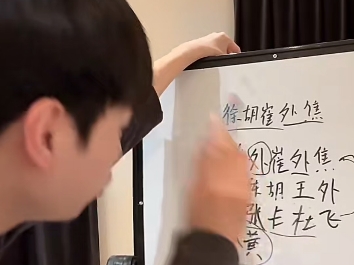 徐胡崔外焦
外崔外焦
胡王外
张卡杜飞
黄